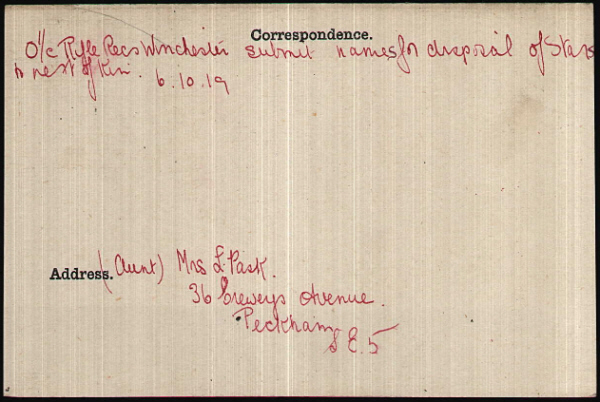 Correspondence.
O i/c Rifle Recs Winchester submit names for disposal of Stars
to next of Kin. 6.10.19
Address. (Aunt) Mrs L. Pask.
36 Crewys Avenue.
Peckham
S E. 5